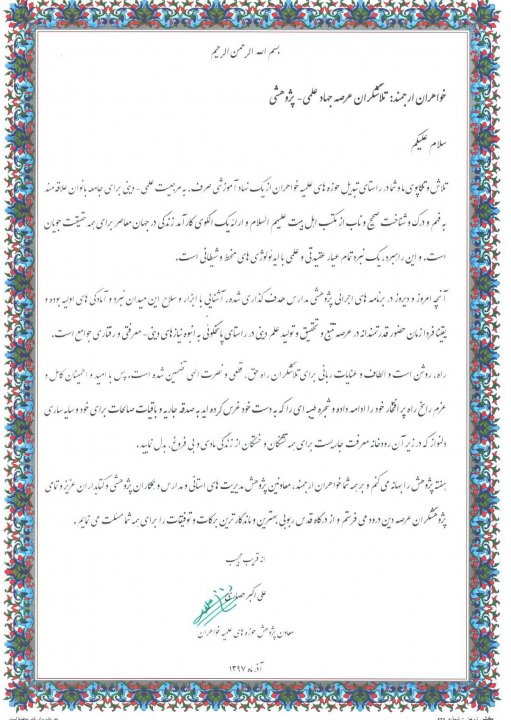 بسم الله الرحمن الرحیم
خواهران ارجمند؛ تلاشگران عرصه جهاد علمی - پژوهشی
سلام علیکم
تلاش و تکاپوی ما و شما در راستای تبدیل حوزه های علمیه خواهران از یک نهاد آموزشی صرف، به مرجعیت علمی - دینی برای جامعه بانوان علاقه مند
به فهم و درک و شناخت صحیح و ناب از مکتب اهل بیت علیهم السلام و ارائه یک الگوی کارآمد زندگی در جهان معاصر برای همه حقیقت جویان
است. و این راهبرد، یک نبرد تمام عیار عقیدتی و علمی با ایدئولوژی های منحط و شیطانی است.
آنچه امروز و دیروز در برنامه های اجرائی پژوهشی مدارس هدف گذاری شده، آشنایی با ابزار و سلاح این میدان نبرد و آمادگی های اولیه بوده و
یقینا فردا زمان حضور قدرتمندانه در عرصه تتبع و تحقیق و تولید علم دینی در راستای پاسخگوئی به انبوه نیازهای دینی - معرفتی و رفتاری جوامع است.
راه، روشن است و الطاف و عنایات ربانی برای تلاشگران راه حق، قطعی و نصرت الهی تضمین شده است. پس با امید و اطمینان کامل و
عزم راسخ راه پر افتخار خود را ادامه داده و شجره طیبه ای را که به دست خود غرس کرده اید به صدقه جاریه و باقیات صالحات برای خود و سایه ساری
دلنواز که در زیر آن رودخانه معرفت جاریست برای همه تشنگان و خستگان از زندگی مادی و بی فروغ، بدل نمایید.
هفته پژوهش را بهانه می کنم و بر همه شما خواهران ارجمند، معاونین پژوهش مدیریت های استانی و مدارس و همکاران پژوهشی و کتابداران عزیز و تمامی
پژوهشگران عرصه دین درود می فرستم و از درگاه قدس ربوبی بهترین و ماندگارترین برکات و توفیقات را برای همه شما مسئلت می نمایم.
انه قریب مجیب
علی اکبر حصاری
معاون پژوهش حوزه های علمیه خواهران
آذر ماه ۱۳۹۷